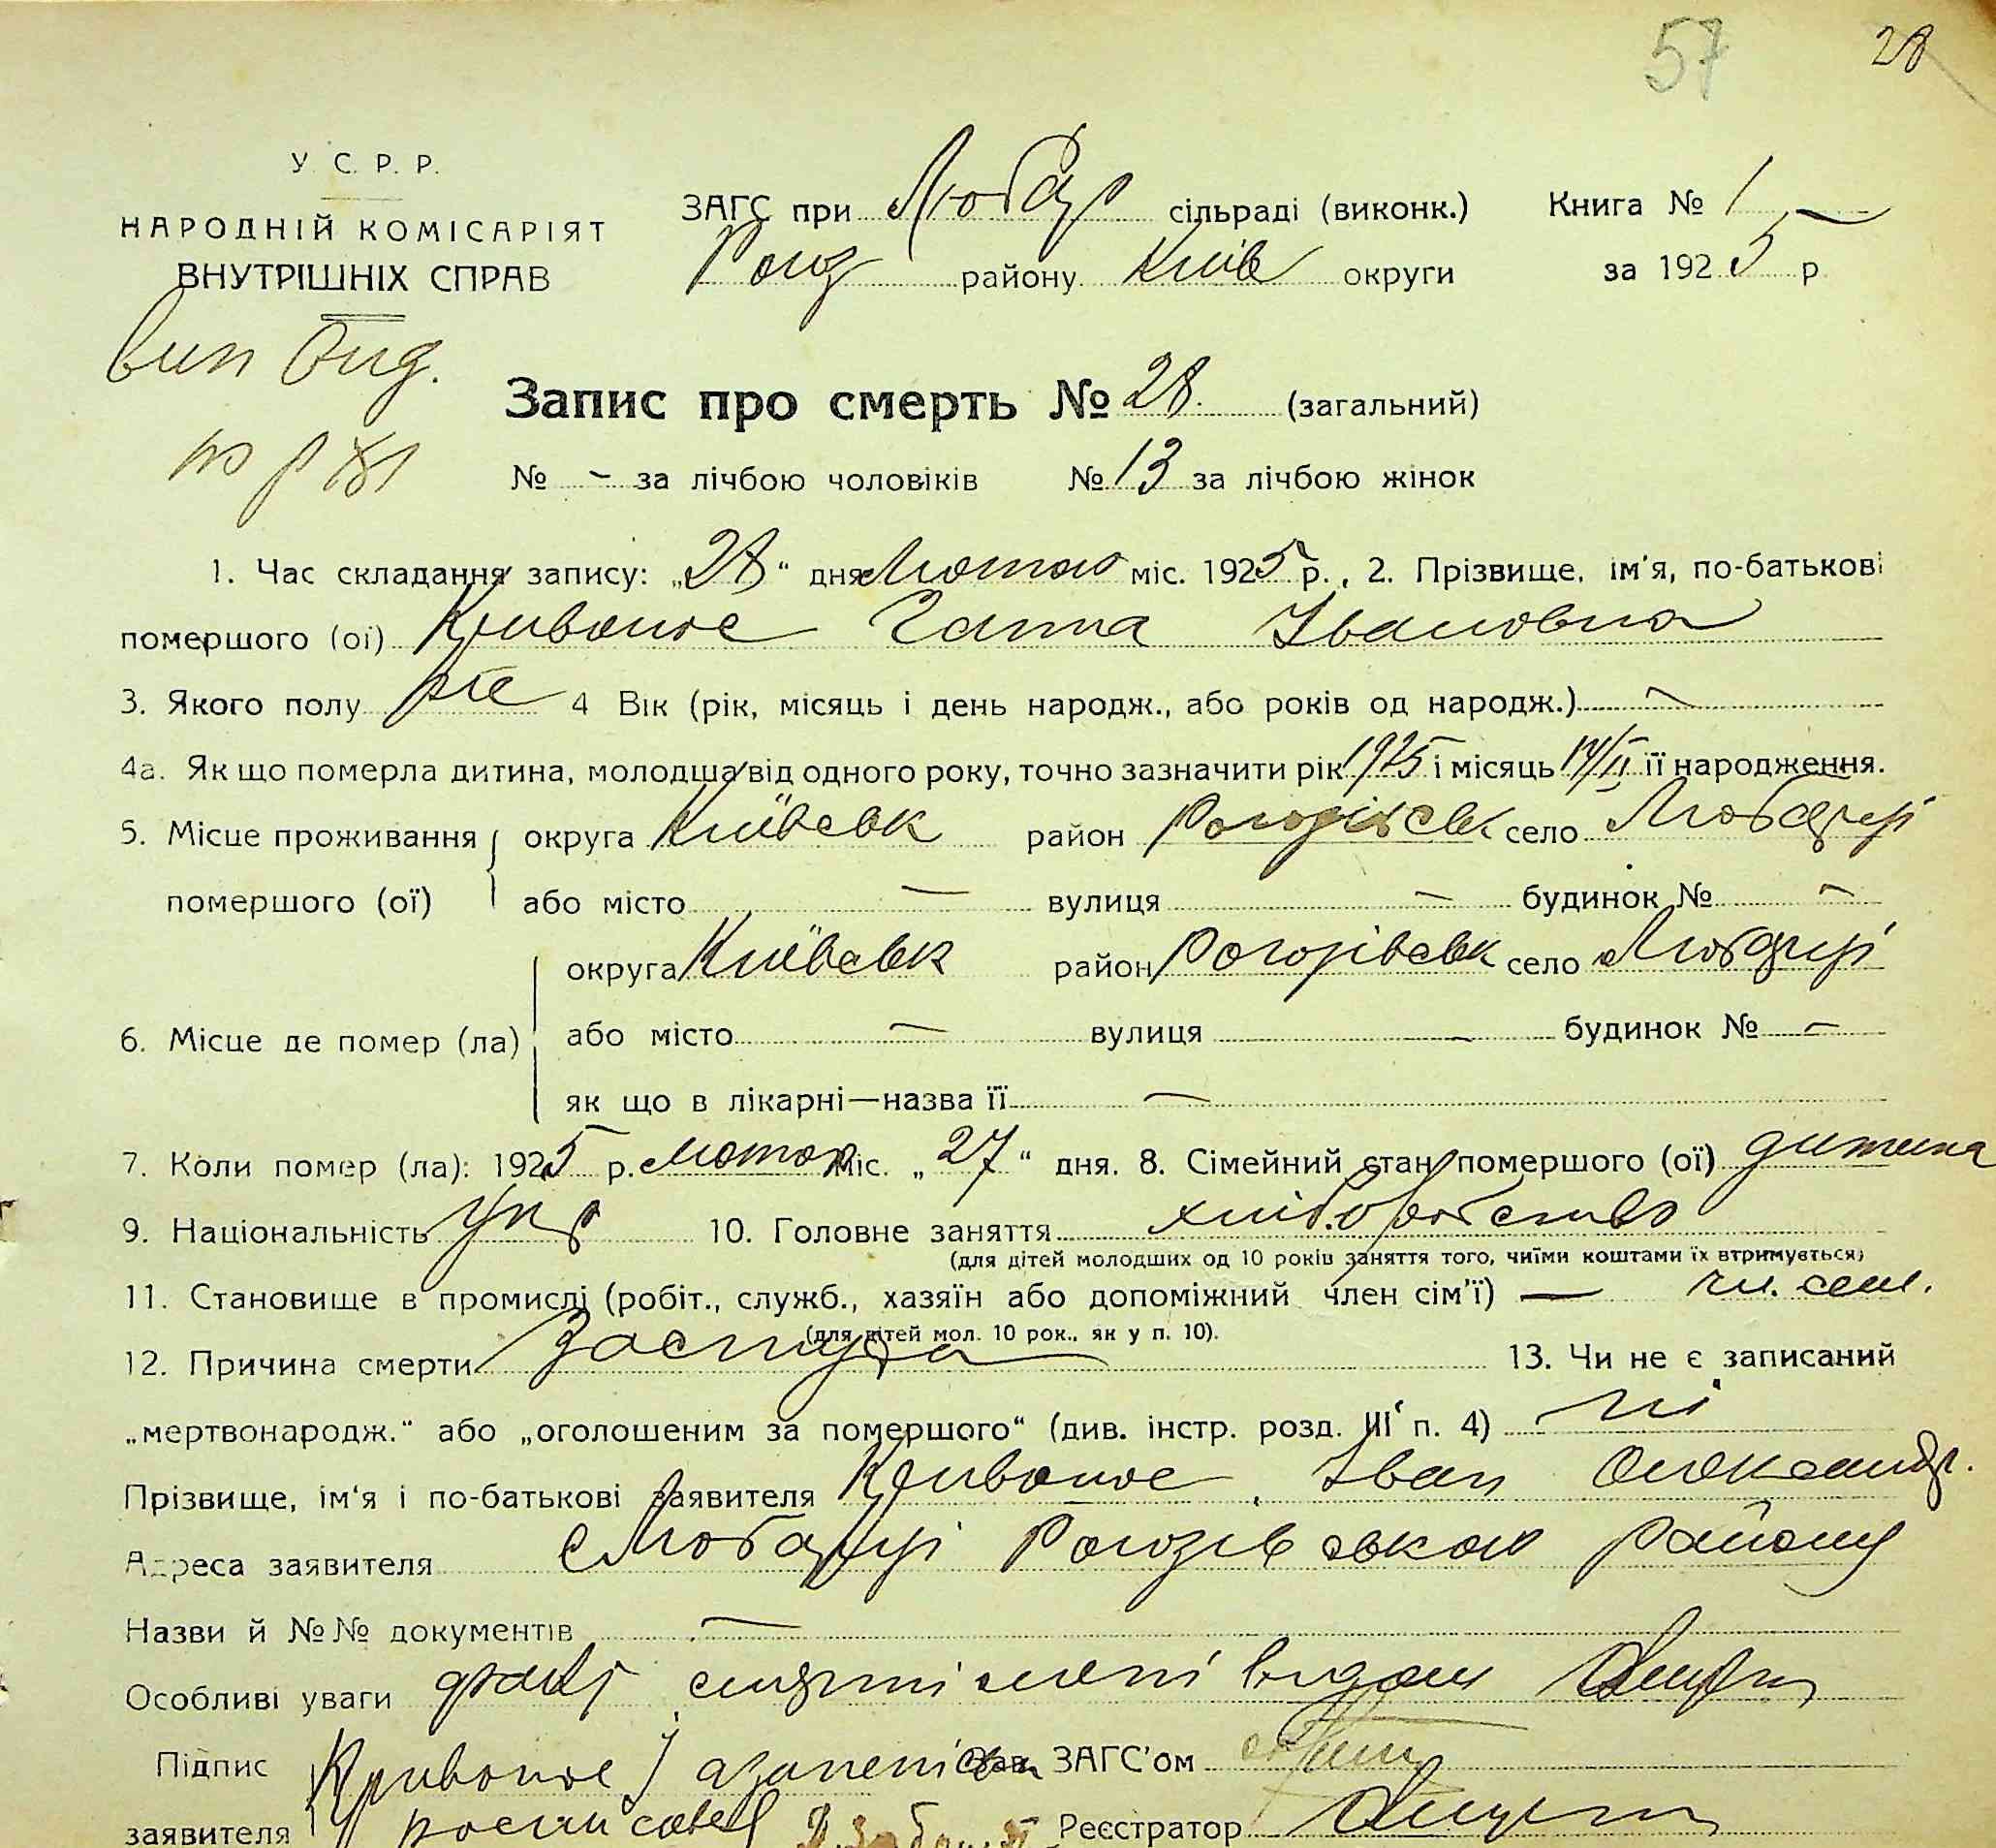 57 28
У. С. Р. Р.
НАРОДНІЙ КОМІСАРІЯТ
ВНУТРІШНІХ СПРАВ
ЗАГС при Любар сільраді (виконк.) Книга № 1
Рогоз району Київ округи за 1925 р.
Запис про смерть № 28 (загальний)
№ - за лічбою чоловіків № 13 за лічбою жінок
1. Час складання запису: „28“ дня Лютого міс. 1925 р., 2. Прізвище, ім'я, по-батькові
помершого (ої) Кривонос Ганна Івановна
3. Якого полу 4 Вік (рік, місяць і день народж., або років од народж.) —
4а. Як що померла дитина, молодша від одного року, точно зазначити рік 1925 і місяць 14/II її народження.
5. Місце проживання округа Київськ район Рогозівськ село Любарці
помершого (ої) або місто — вулиця — будинок № —
округа Київськ район Рогозівськ село Любарці
6. Місце де помер (ла) або місто — вулиця — будинок № —
як що в лікарні—назва її —
7. Коли помер (ла): 1925 р. Лютого міс. „27“ дня. 8. Сімейний стан помершого (ої) дитина
9. Національність Укр 10. Головне заняття хліборобство
(для дітей молодших од 10 років заняття того, чиїми коштами їх втримується)
11. Становище в промислі (робіт., служб., хазяїн або допоміжний член сім'ї) — чл. сем.
(для дітей мол. 10 рок., як у п. 10).
12. Причина смерти Заступа 13. Чи не є записаний
„мертвонародж.“ або „оголошеним за помершого“ (див. інстр. розд. III п. 4) ні
Прізвище, ім'я і по-батькові заявителя Кривонос Іван Олександр.
Адреса заявителя с Любарці Рогозівського району
Назви й №№ документів —
Особливі уваги смерти мені видан
Підпис Кривонос Зав. ЗАГС'ом
заявителя Реєстратор